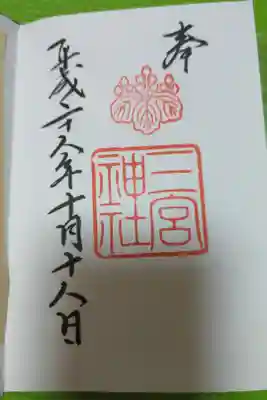 奉
二宮
神社
平成二十八年十月十八日